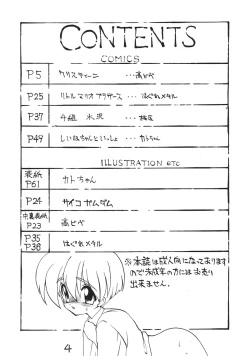 CONTENTS
COMICS
P5 クリスティーニ …高ヒペ
P25 リトルマリオブラザース …はぐれメタル
P37 4組 水沢
P49 しいねちゃんといっしょ …カトちゃん
ILLUSTRATION etc
表紙 P61 カトちゃん
P24 サイコヤムダム
中裏表紙 P23 高ヒペ
P35 P38 はぐれメタル
※本誌は成人向になっております
ので未成年の方にはお売り
出来ません.
4